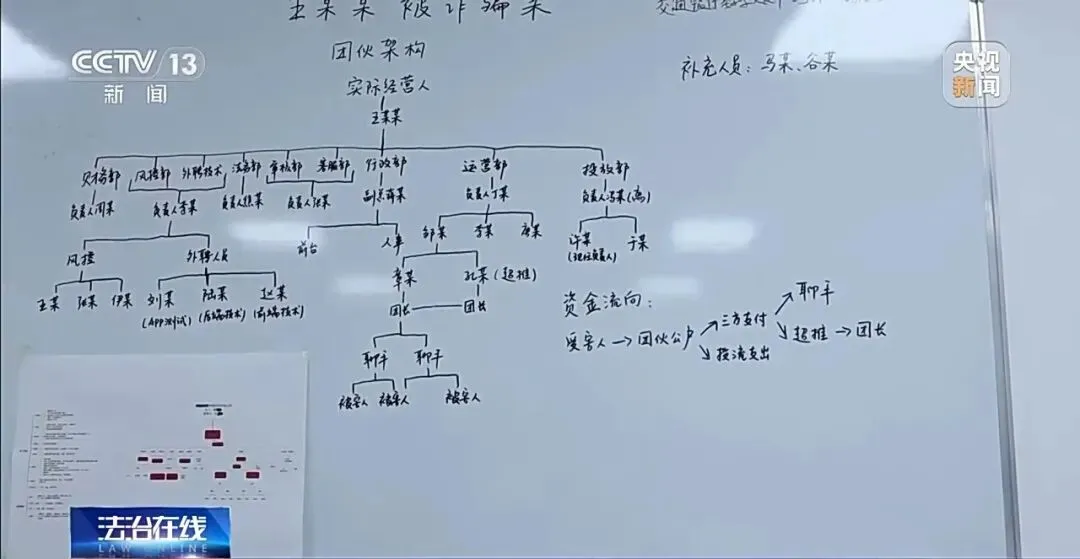 王某某被诈骗案
CCTV 13
新闻
央视
新闻
团伙架构
补充人员：马某、谷某
实际经营人
王某某
财务部 风控部 外聘技术 法务部 审核部 客服部 行政部 运营部 投放部
负责人周某 负责人李某 负责人焦某 负责人张某 副总薛某 负责人丁某 负责人冯某(离)
前台 人事 邹某 李某 唐某 许某 于某
(现任负责人)
风控 外聘人员 章某 孔某(超推)
王某 张某 伊某 刘某 陆某 赵某 团长 团长
(APP测试) (后端技术) (前端技术)
资金流向：
受害人→团伙公户 三方支付 聊手
投流支出 超推→团长
聊手 聊手
被害人 被害人 被害人
法治在线
LAW ONLINE